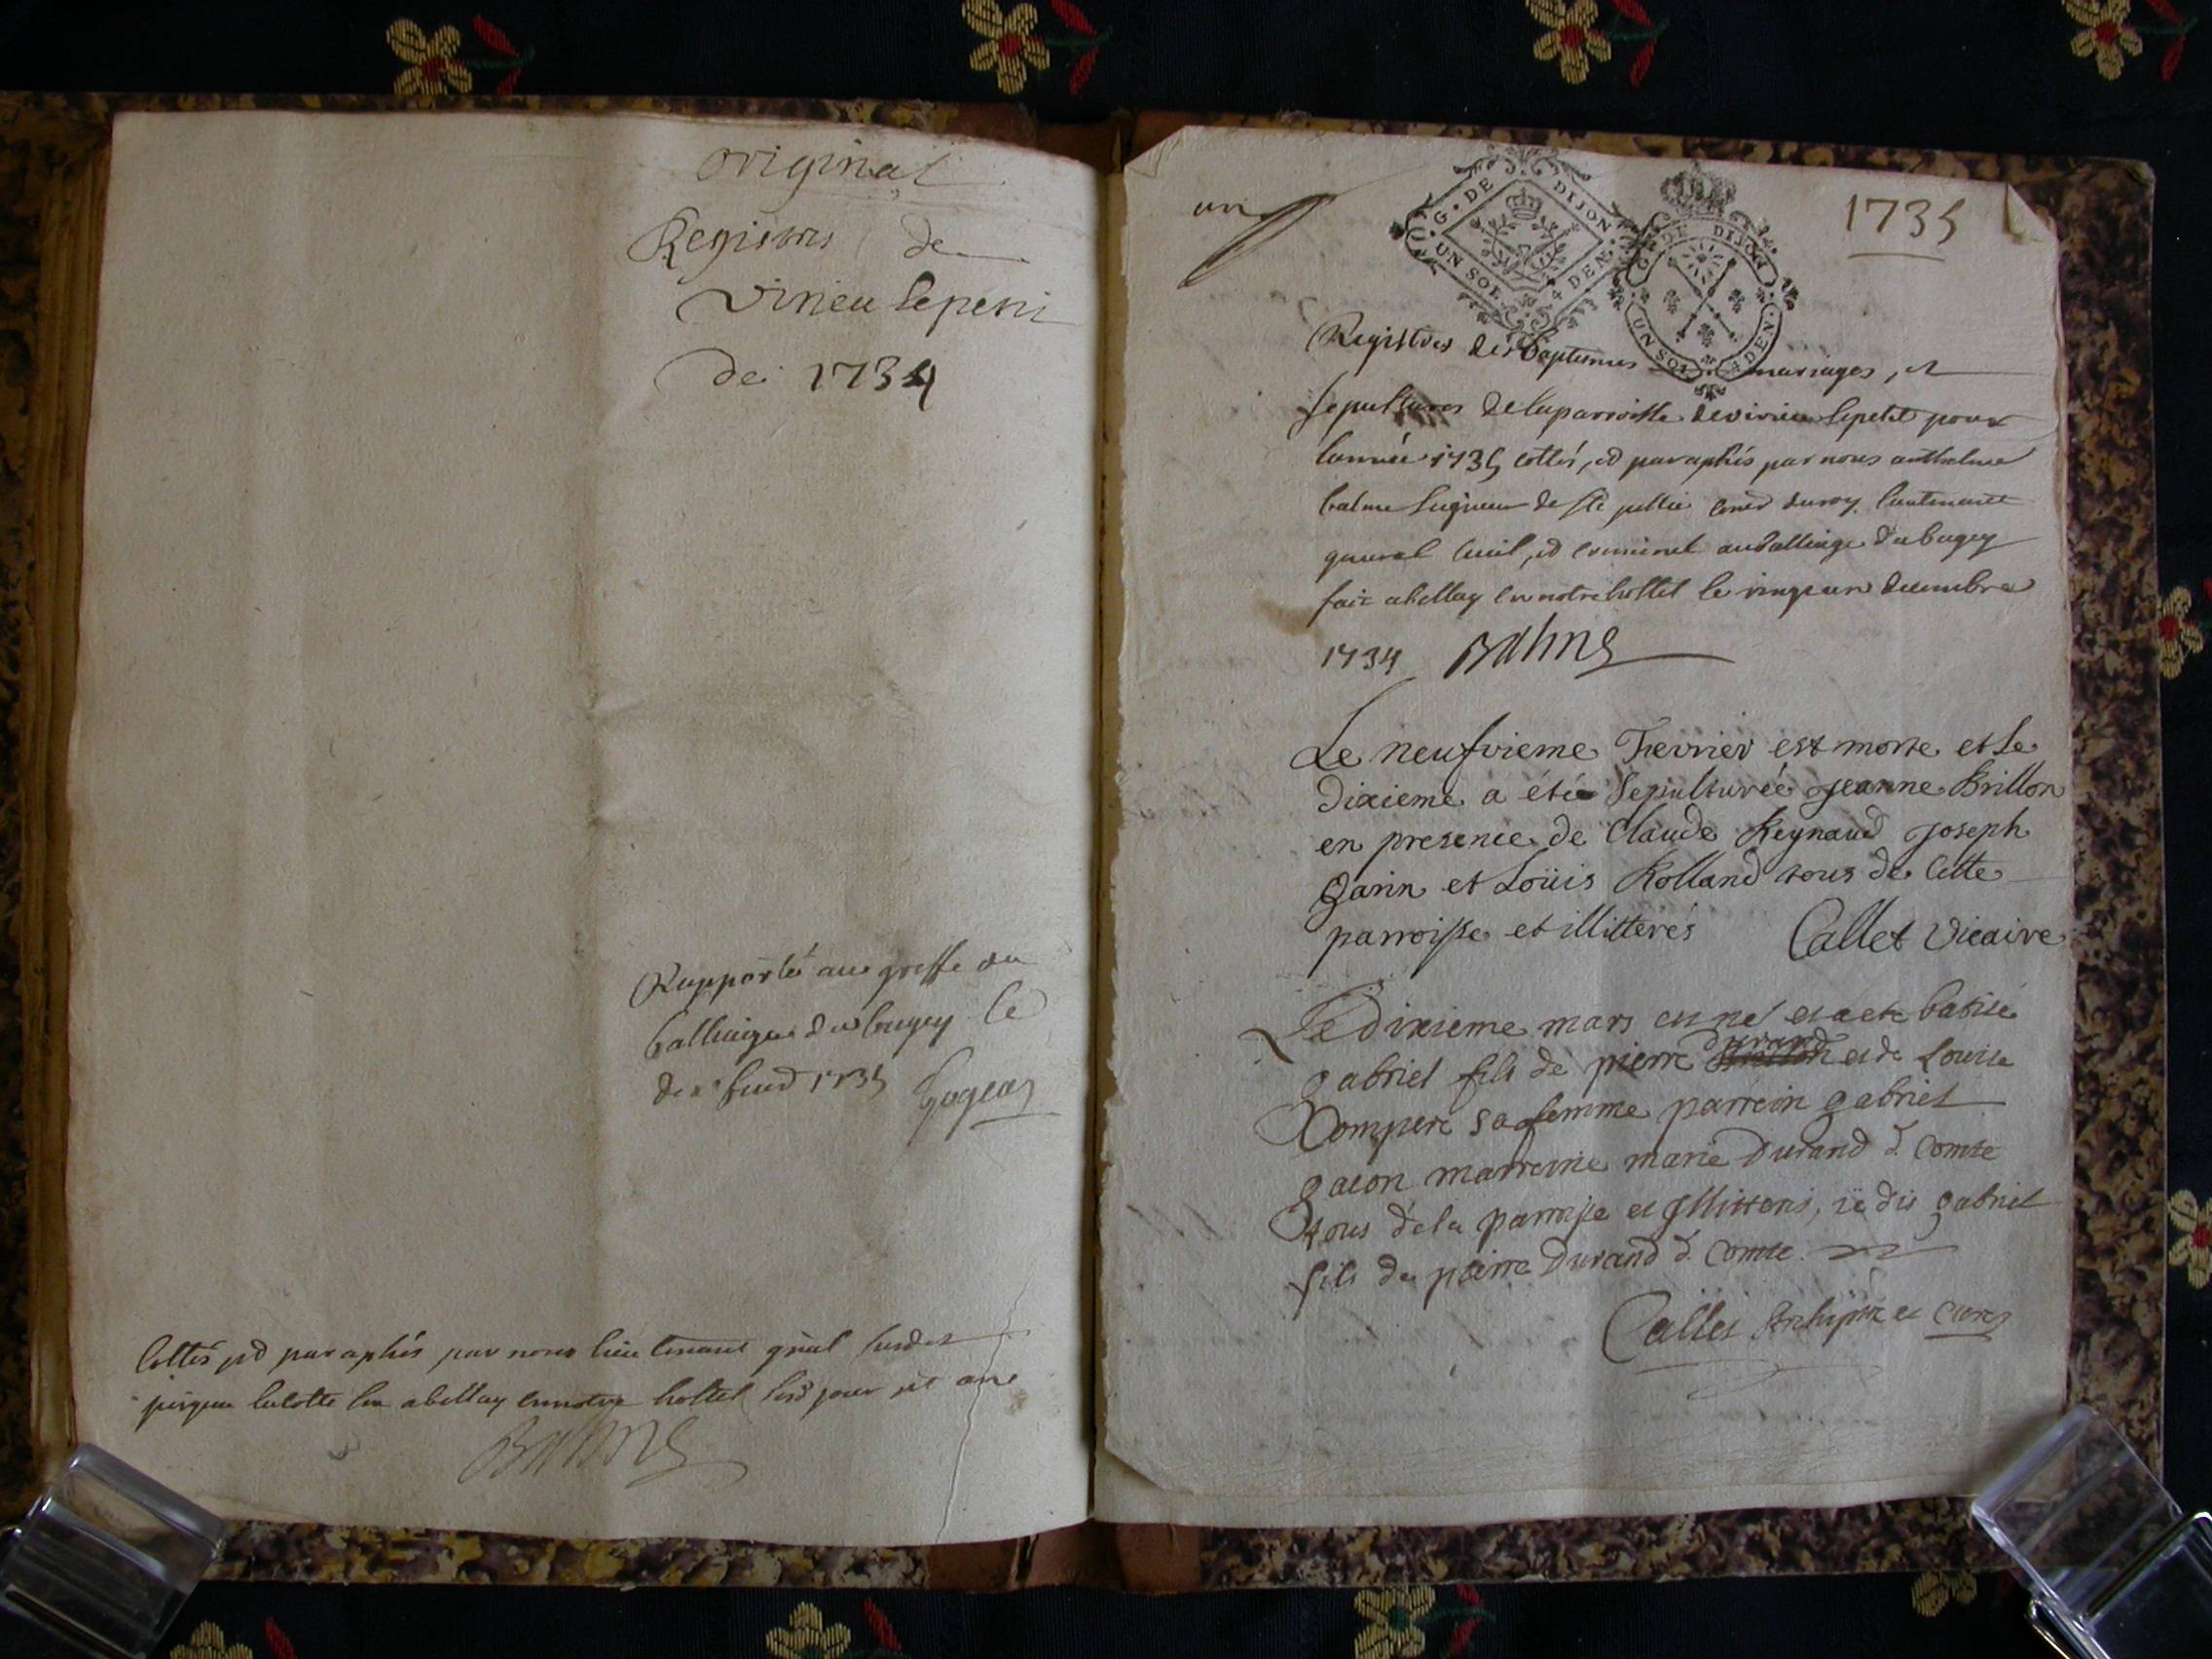 original
Registres de
Virieu lepetit
de 1734
Rapporté au greffe du
balliage du bugey le
1735
Cottés et paraphés par nous lieutenant
jusqua abellay en notre hottel jour et an
Balme
un
1735
G. DE DIJON
UN SOL 4 DEN.
G. DE DIJON
UN SOL 4 DEN.
Registres des baptesmes mariages, et
sepultures de la parroisse de virieu lepetit pour
lannée 1735 cottés, et paraphés par nous anthelme
balme seigneur de ste jullie du roy lieutenant
civil, et criminel au balliage du bugey
fait abellay en notre hottel le vingt un decembre
1734 Balme
Le neufvieme Fevrier est morte et le
dixieme a été Sepulturée jeanne Brillon
en presence de Claude Reynaud joseph
garin et Loüis Rolland tous de cette
parroisse et illitterés Callet Vicaire
Le dixieme mars est né et a ete batisé
gabriel fils de pierre durand et de Louise
Compere sa femme parrein gabriel
marreine marie Durand d. Comte
tous de la parroisse et Illitterés, ie dis gabriel
fils de pierre Durand d. Comte
Callet Archiprê et Curé